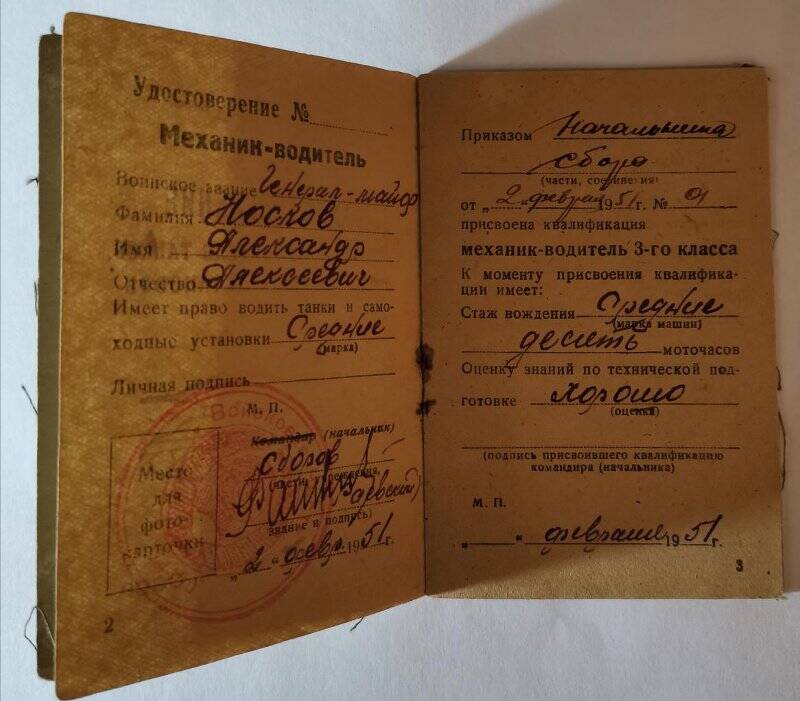 Удостоверение №
Механик-водитель
Воинское звание Генерал-майор
Фамилия Носков
Имя Александр
Отчество Алексеевич
Имеет право водить танки и само-
ходные установки Средние
(марка)
Личная подпись
М. П.
Командир (начальник)
сборов
(части, учреждения,
звание и подпись)
„2“ февр. 1951 г.
Место
для
фото-
карточки
2
Приказом Начальника
сбора
(части, соединения)
от „2“ февраля 1951 г. № 01
присвоена квалификация
механик-водитель 3-го класса
К моменту присвоения квалифика-
ции имеет:
Стаж вождения Средние
(марка машин)
десять моточасов
Оценку знаний по технической под-
готовке хорошо
(оценка)
(подпись присвоившего квалификацию
командира (начальника)
М. П.
„ “ февраля 1951 г.
3